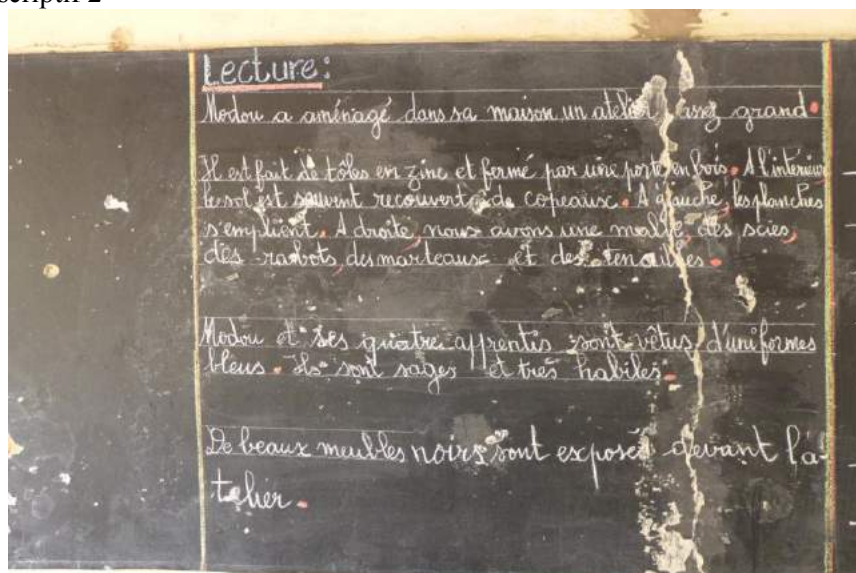 Lecture:
Modou a aménagé dans sa maison un atelier assez grand.
Il est fait de tôles en zinc et fermé par une porte en bois. A l'intérieur,
le sol est souvent recouvert de copeaux. A gauche, les planches
s'emplient. A droite, nous avons une malle, des scies,
des rabots, des marteaux et des tenailles.
Modou et ses quatre apprentis sont vêtus d'uniformes
bleus. Ils sont sages et très habiles.
De beaux meubles noirs sont exposés devant l'a-
telier.